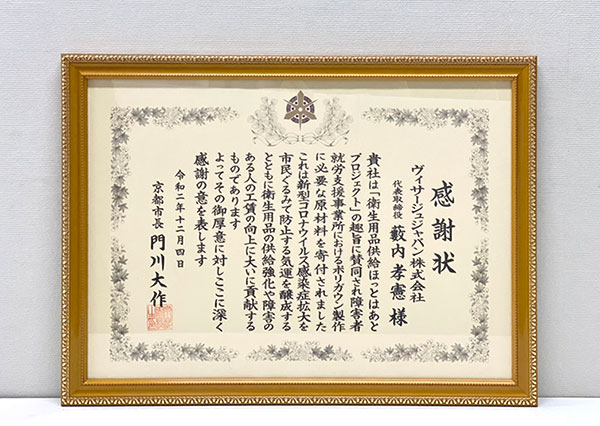 感謝状
ヴィサージュジャパン株式会社
代表取締役 藪内孝憲様
貴社は「衛生用品供給ほっとはあと
プロジェクト」の趣旨に賛同され障害者
就労支援事業所におけるポリガウン製作
に必要な原材料を寄付されました
これは新型コロナウイルス感染症拡大を
市民ぐるみで防止する気運を醸成する
とともに衛生用品の供給強化や障害の
ある人の工賃の向上に大いに貢献する
ものであります
よってその御厚意に対しここに深く
感謝の意を表します
令和二年十二月四日
京都市長 門川大作